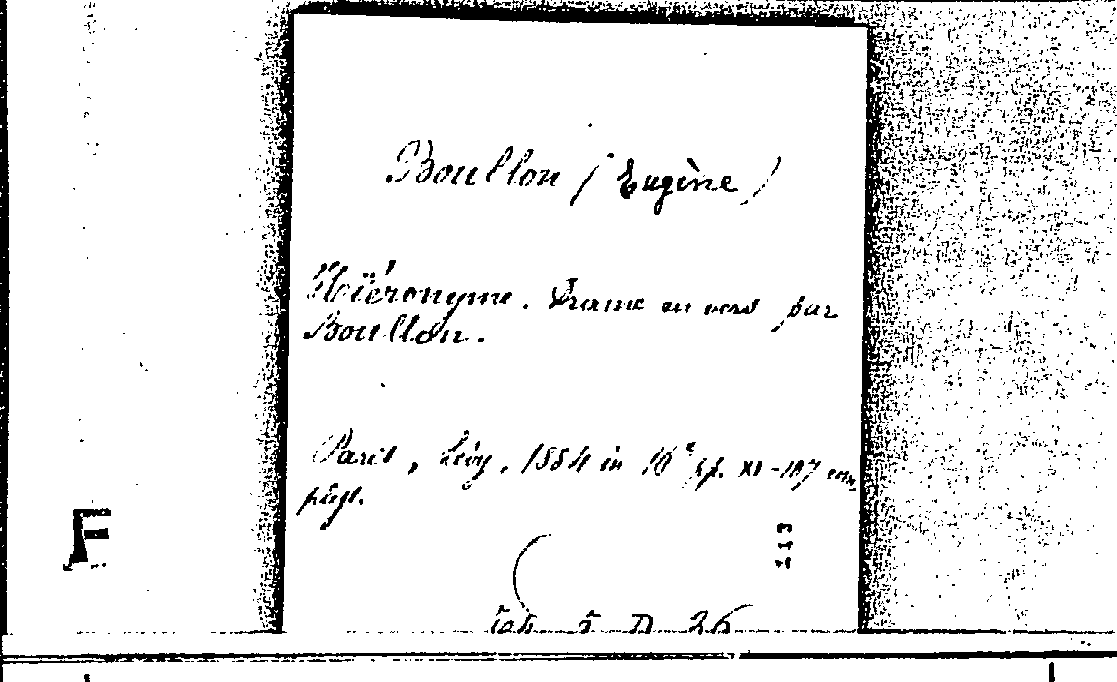 Boullon (Eugène)
Hiéronyme. Drame en vers par
Boullon.
Paris, Lévy, 1884 in 16° pp. XI-107
F